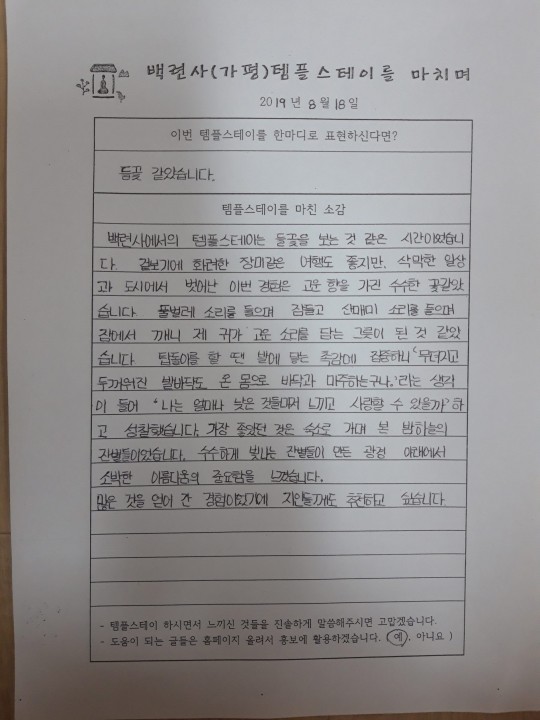 백련사(가평)템플스테이를 마치며
2019년 8월 18일
이번 템플스테이를 한마디로 표현하신다면?
들꽃 같았습니다.
템플스테이를 마친 소감
백련사에서의 템플스테이는 들꽃을 보는 것 같은 시간이었습니
다. 겉보기에 화려한 장미같은 여행도 좋지만, 삭막한 일상
과 도시에서 벗어난 이번 경험은 고운 향을 가진 수수한 꽃같았
습니다. 풀벌레 소리를 들으며 잠들고 산매미 소리를 들으며
잠에서 깨니 제 귀가 고운 소리를 담는 그릇이 된 것 같았
습니다. 탑돌이를 할 땐 발에 닿는 촉감에 집중하니 '무뎌지고
두꺼워진 발바닥도 온 몸으로 바닥과 마주하는구나.'라는 생각
이 들어 "나는 얼마나 낮은 것들마저 느끼고 사랑할 수 있을까?"하
고 성찰했습니다. 가장 좋았던 것은 숙소로 가며 본 밤하늘의
잔별들이었습니다. 수수하게 빛나는 잔별들이 만든 광경 아래에서
소박한 아름다움의 중요함을 느꼈습니다.
많은 것을 얻어 간 경험이었기에 지인들께도 추천하고 싶습니다.
- 템플스테이 하시면서 느끼신 것들을 진솔하게 말씀해주시면 고맙겠습니다.
- 도움이 되는 글들은 홈페이지 올려서 홍보에 활용하겠습니다. ( 예 , 아니요 )